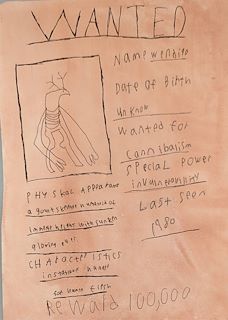 WANTED
Name wendigo
Date of Birth
unknow
Wanted for
cannibalism
special power
invulnerability
Last seen
1980
PHYSICAL APPearance
a gaunt skeletal humanoid
immense heights with sunken
glowing eyes
CHARacteristics
insatiable hunger
for human flesh
Reward 100,000